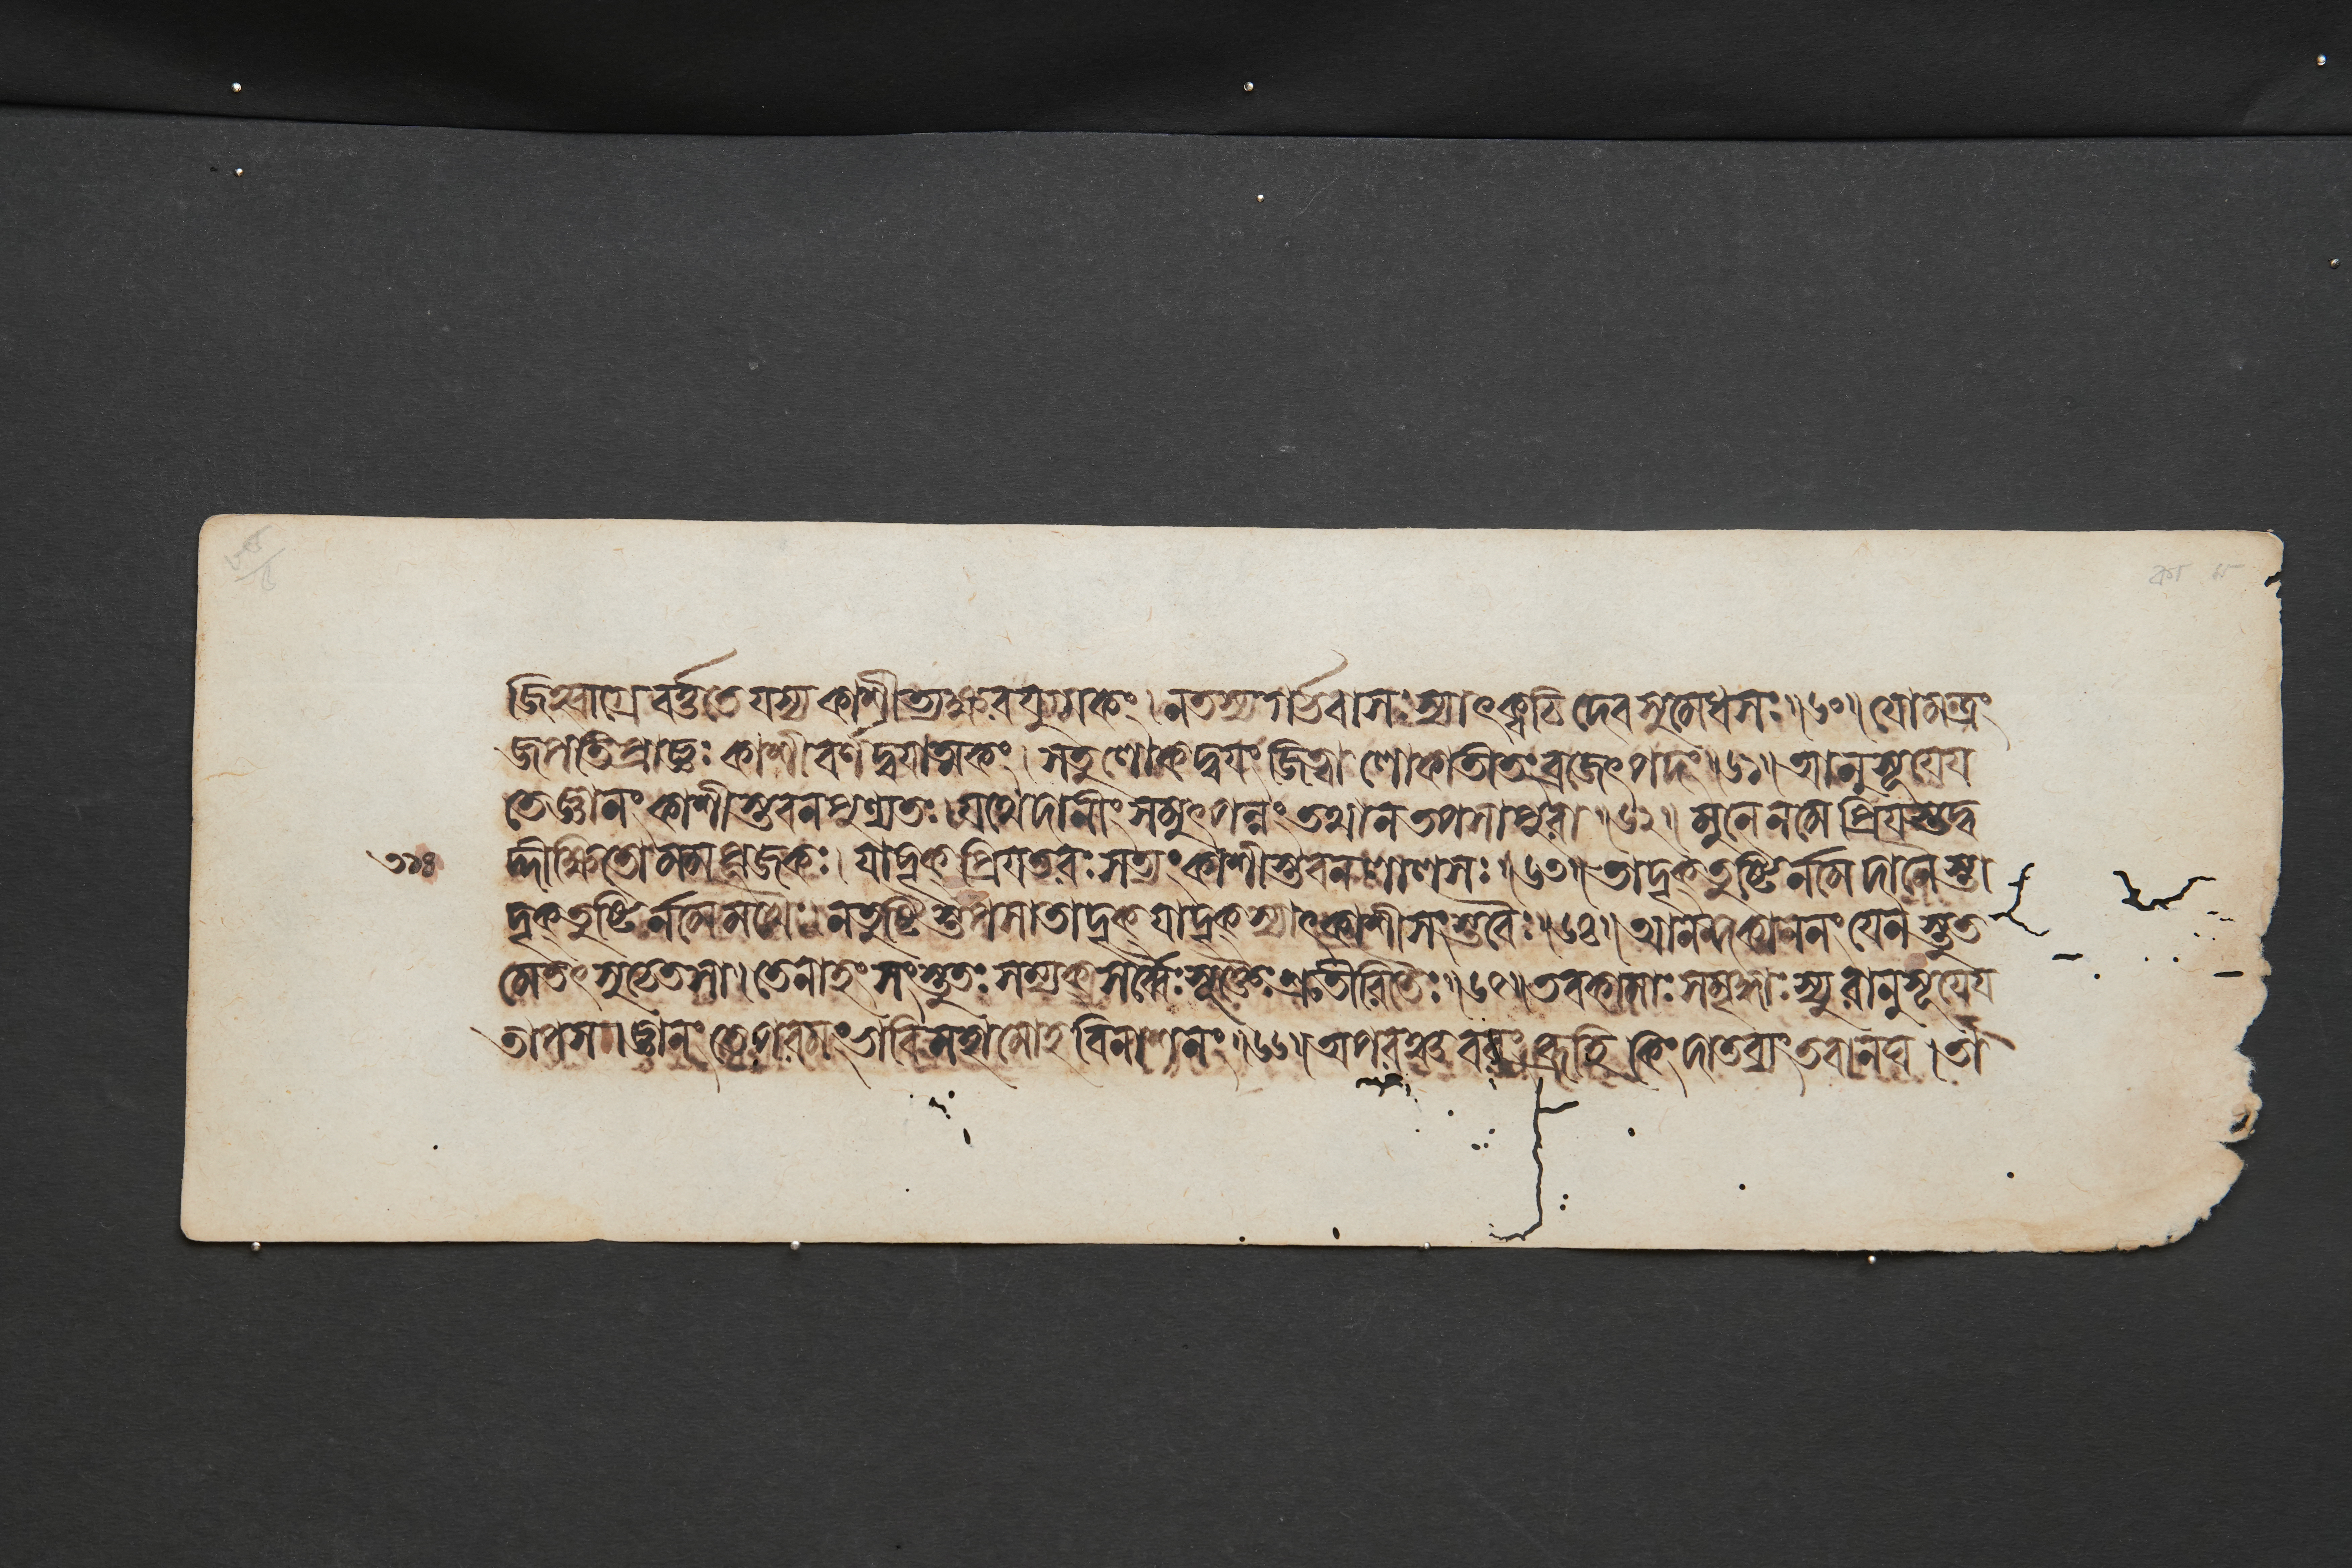 জিহ্বাগ্রে বর্ত্ততে যস্য কাশীত্যক্ষরযুগ্মকং। ন তস্য গর্ভবাসঃ স্যাৎ ক্বচিদেব সুমেধসঃ॥৬০॥ যো মন্ত্রং
জপতি প্রাজ্ঞঃ কাশীবর্ণদ্বয়াত্মকং। স তু লোকদ্বয়ং জিত্বা লোকাতীতং ব্রজেৎ পদং॥৬১॥ আনুসূয়েয়
তে জ্ঞানং কাশীস্তবনপুণ্যতঃ। যথেদানীং সমুৎপন্নং তথা ন তপসা পুরা॥৬২॥ মুনে ন মে প্রিয়স্তদ্ব
৩১৪ দ্দীক্ষিতো মম পূজকঃ। যাদৃক্ প্রিয়তরঃ সত্যং কাশীস্তবনলালসঃ॥৬৩॥ তাদৃক্ তুষ্টির্ন মে দানৈস্তা
দৃক্ তুষ্টির্ন মে মখৈঃ। ন তুষ্টিস্তপসা তাদৃক্ যাদৃক্ স্যাৎ কাশীসংস্তবৈঃ॥৬৪॥ আনন্দকাননং যেন স্তুত
মেতৎ সুচেতসা। তেনাহং সংস্তুতঃ সম্যক্ সর্ব্বৈঃ সূক্তৈঃ শ্রুতীরিতৈঃ॥৬৫॥ তব কামাঃ সমৃদ্ধাঃ স্যুরানুসূয়েয়
তাপস। জ্ঞানং তে পরমং ভাবি মহামোহবিনাশনং॥৬৬॥ অপরঞ্চ বরং ব্রূহি কিং দাতব্যং তবানঘ। ত্বা
কা